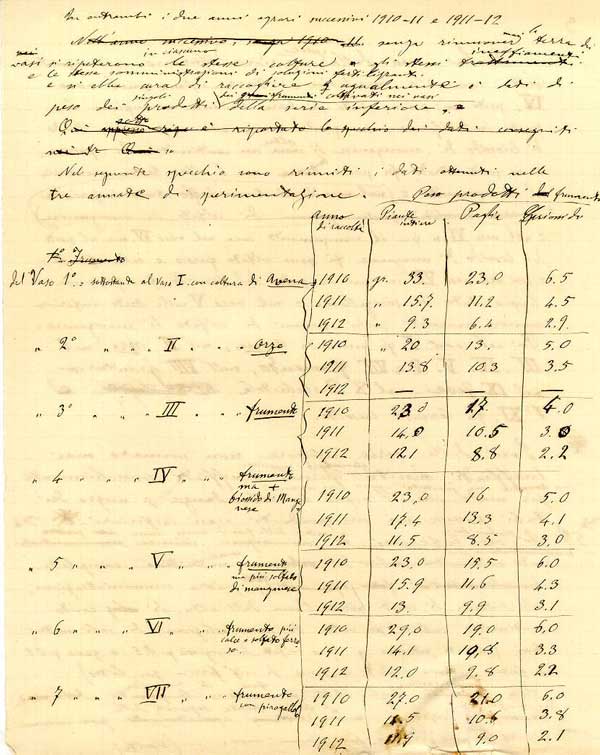 In entrambi i due anni agrari successivi 1910-11 e 1911-12
Nell'anno successivo, 1910 senza rinnovar la terra dei
vasi si ripeterono in ciascuno le stesse colture e gli stessi trattamenti
e le stesse somministrazioni di soluzioni fertilizzanti
e si ebbe cura di raccogliere ugualmente i dati di
peso dei singoli prodotti dei frumenti coltivati nei vasi della serie inferiore, e
Qui sotto è riportato lo specchio dei dati conseguiti
Nel seguente specchio sono riuniti i dati ottenuti nelle
tre annate di sperimentazione. Peso prodotti del frumento
Anno di raccolta Piante intiere Paglia Granio di
1º Frumento
del Vaso 1º sottostante al Vaso I con coltura di Avena 1910 gr. 33. 23.0 6.5
1911 " 15.7 11.2 4.5
1912 " 9.3 6.4 2.9
" 2º " " II " " Orzo 1910 " 20 13. 5.0
1911 13.8 10.3 3.5
1912 — — —
" 3º " " III " " frumento 1910 23.0 17. 4.0
1911 14.0 10.5 3.0
1912 12.1 8.8 2.2
" 4 " " IV " " frumento ma + biossido di Manganese 1910 23.0 16. 5.0
1911 17.4 13.3 4.1
1912 11.5 8.5 3.0
" 5 " " V " " frumento ma più solfato di manganese 1910 23.0 15.5 6.0
1911 15.9 11.6 4.3
1912 13. 9.9 3.1
" 6 " " VI " " frumento più calce e solfato ferroso. 1910 29.0 19.0 6.0
1911 14.1 10.8 3.3
1912 12.0 9.8 2.2
" 7 " " VII " " frumento con pirogallolo 1910 27.0 21.0 6.0
1911 14.5 10.6 3.8
1912 11.9 9.0 2.1